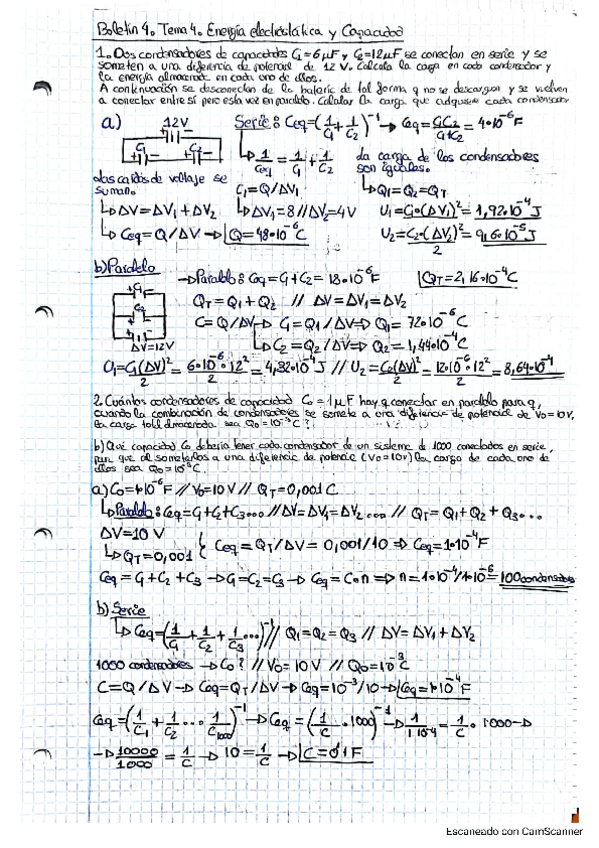 Boletín 4. Tema 4. Energía electrostática y Capacidad
1. Dos condensadores de capacidades C₁=6μF y C₂=12μF se conectan en serie y se
someten a una diferencia de potencial de 12 V. Calcula la carga en cada condensador y
la energía almacenada en cada uno de ellos.
A continuación se desconectan de la batería de tal forma q no se descargan y se vuelven
a conectar entre sí pero esta vez en paralelo. Calcular la carga que adquiere cada condensador
a) 12V Serie: Ceq=(1/C₁+1/C₂)⁻¹ → Ceq=C₁C₂/C₁+C₂=4·10⁻⁶F
C₁ C₂ ↳ 1/Ceq=1/C₁+1/C₂ La carga de los condensadores
son iguales.
Las caídas de voltaje se
suman. C₁=Q/ΔV₁ ↳Q₁=Q₂=QT
↳ΔV=ΔV₁+ΔV₂ ↳ΔV₁=8//ΔV₂=4V U₁=C₁·(ΔV₁)²/2=1,92·10⁻⁴J
↳Ceq=Q/ΔV → Q=48·10⁻⁶C U₂=C₂·(ΔV₂)²/2=9,6·10⁻⁵J
b) Paralelo → Paralelo: Ceq=C₁+C₂=18·10⁻⁶F QT=2,16·10⁻⁴C
C₁ QT=Q₁+Q₂ // ΔV=ΔV₁=ΔV₂
C₂ C=Q/ΔV→ C₁=Q₁/ΔV⇒ Q₁=72·10⁻⁶C
ΔV=12V ↳C₂=Q₂/ΔV⇒ Q₂=1,44·10⁻⁴C
U₁=C₁(ΔV)²/2=6·10⁻⁶·12²/2=4,32·10⁻⁴J // U₂=C₂(ΔV)²/2=12·10⁻⁶·12²/2=8,64·10⁻⁴
2. Cuántos condensadores de capacidad C₀=1μF hay q conectar en paralelo para q,
cuando la combinación de condensadores se somete a una diferencia de potencial de V₀=10V,
la carga total almacenada sea Q₀=10⁻³C?
b) Qué capacidad C₀ debería tener cada condensador de un sistema de 1000 conectados en serie,
para que al someterlos a una diferencia de potencia (V₀=10V) la carga de cada uno de
ellos sea Q₀=10⁻³C.
a) C₀=1·10⁻⁶F // V₀=10V // QT=0,001C
↳Paralelo: Ceq=C₁+C₂+C₃... // ΔV=ΔV₁=ΔV₂... // QT=Q₁+Q₂+Q₃...
ΔV=10V
↳QT=0,001 { Ceq=QT/ΔV=0,001/10 ⇒ Ceq=1·10⁻⁴F
Ceq=C₁+C₂+C₃→C₁=C₂=C₃→Ceq=C·n ⇒ n=1·10⁻⁴/1·10⁻⁶=100condensadores
b) Serie
↳Ceq=(1/C₁+1/C₂+1/C₃...)⁻¹ // Q₁=Q₂=Q₃ // ΔV=ΔV₁+ΔV₂
1000 condensadores → C₀? // V₀=10V // Q₀=10⁻³C
C=Q/ΔV→Ceq=QT/ΔV→Ceq=10⁻³/10→Ceq=1·10⁻⁴F
Ceq=(1/C₁+1/C₂...1/C₁₀₀₀)⁻¹→Ceq=(1/C·1000)⁻¹→1/1·10⁻⁴=1/C·1000→
→10000/1000=1/C→10=1/C→C=0,1F
Escaneado con CamScanner